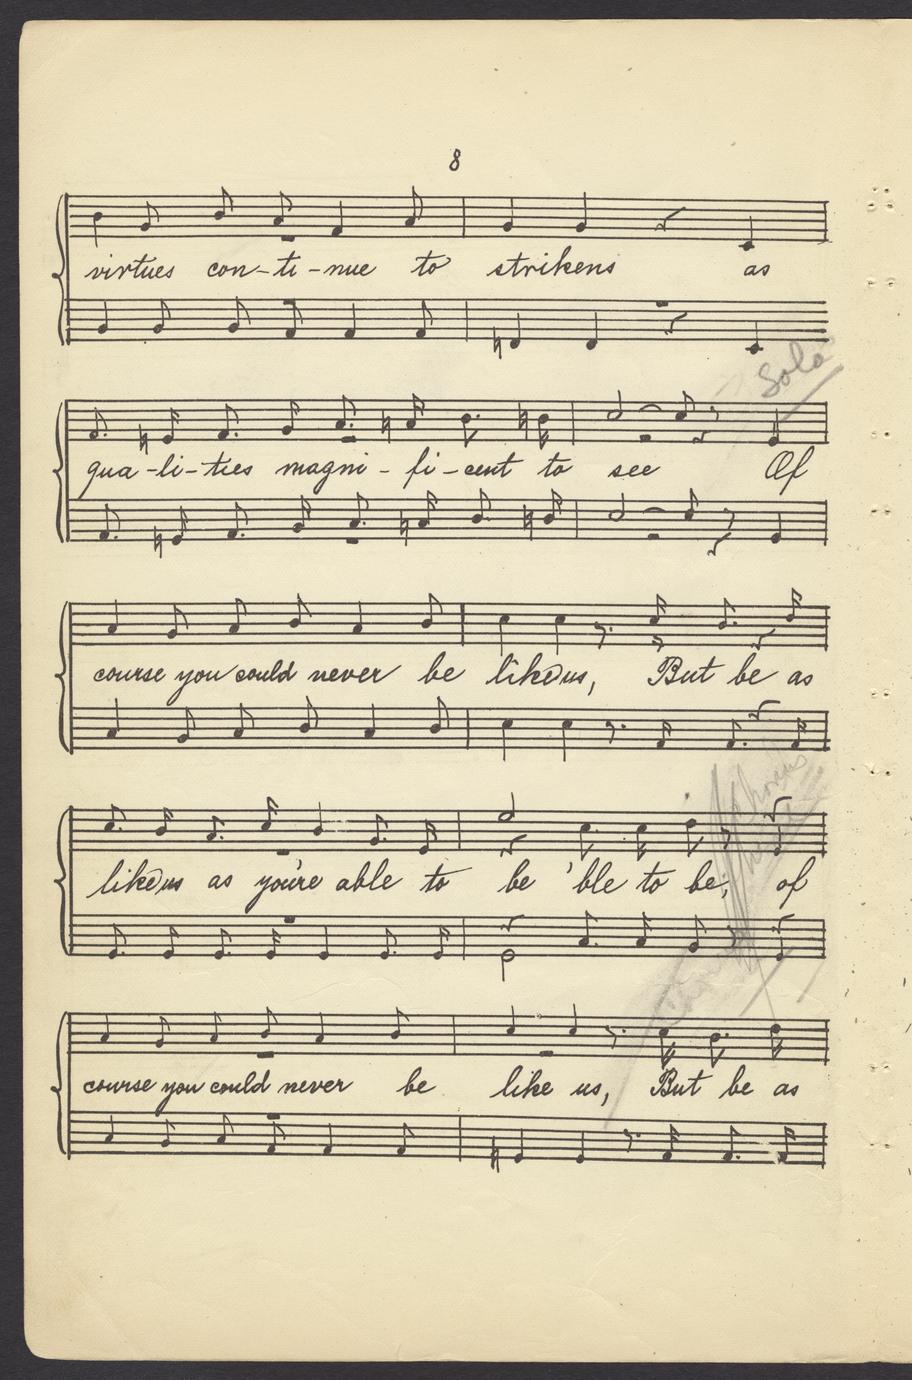 8
virtues con-ti-nue to strikens as
Solo
qua-li-ties magni-fi-cent to see Of
course you could never be like us, But be as
like us as you're able to be 'ble to be; of
course you could never be like us, But be as